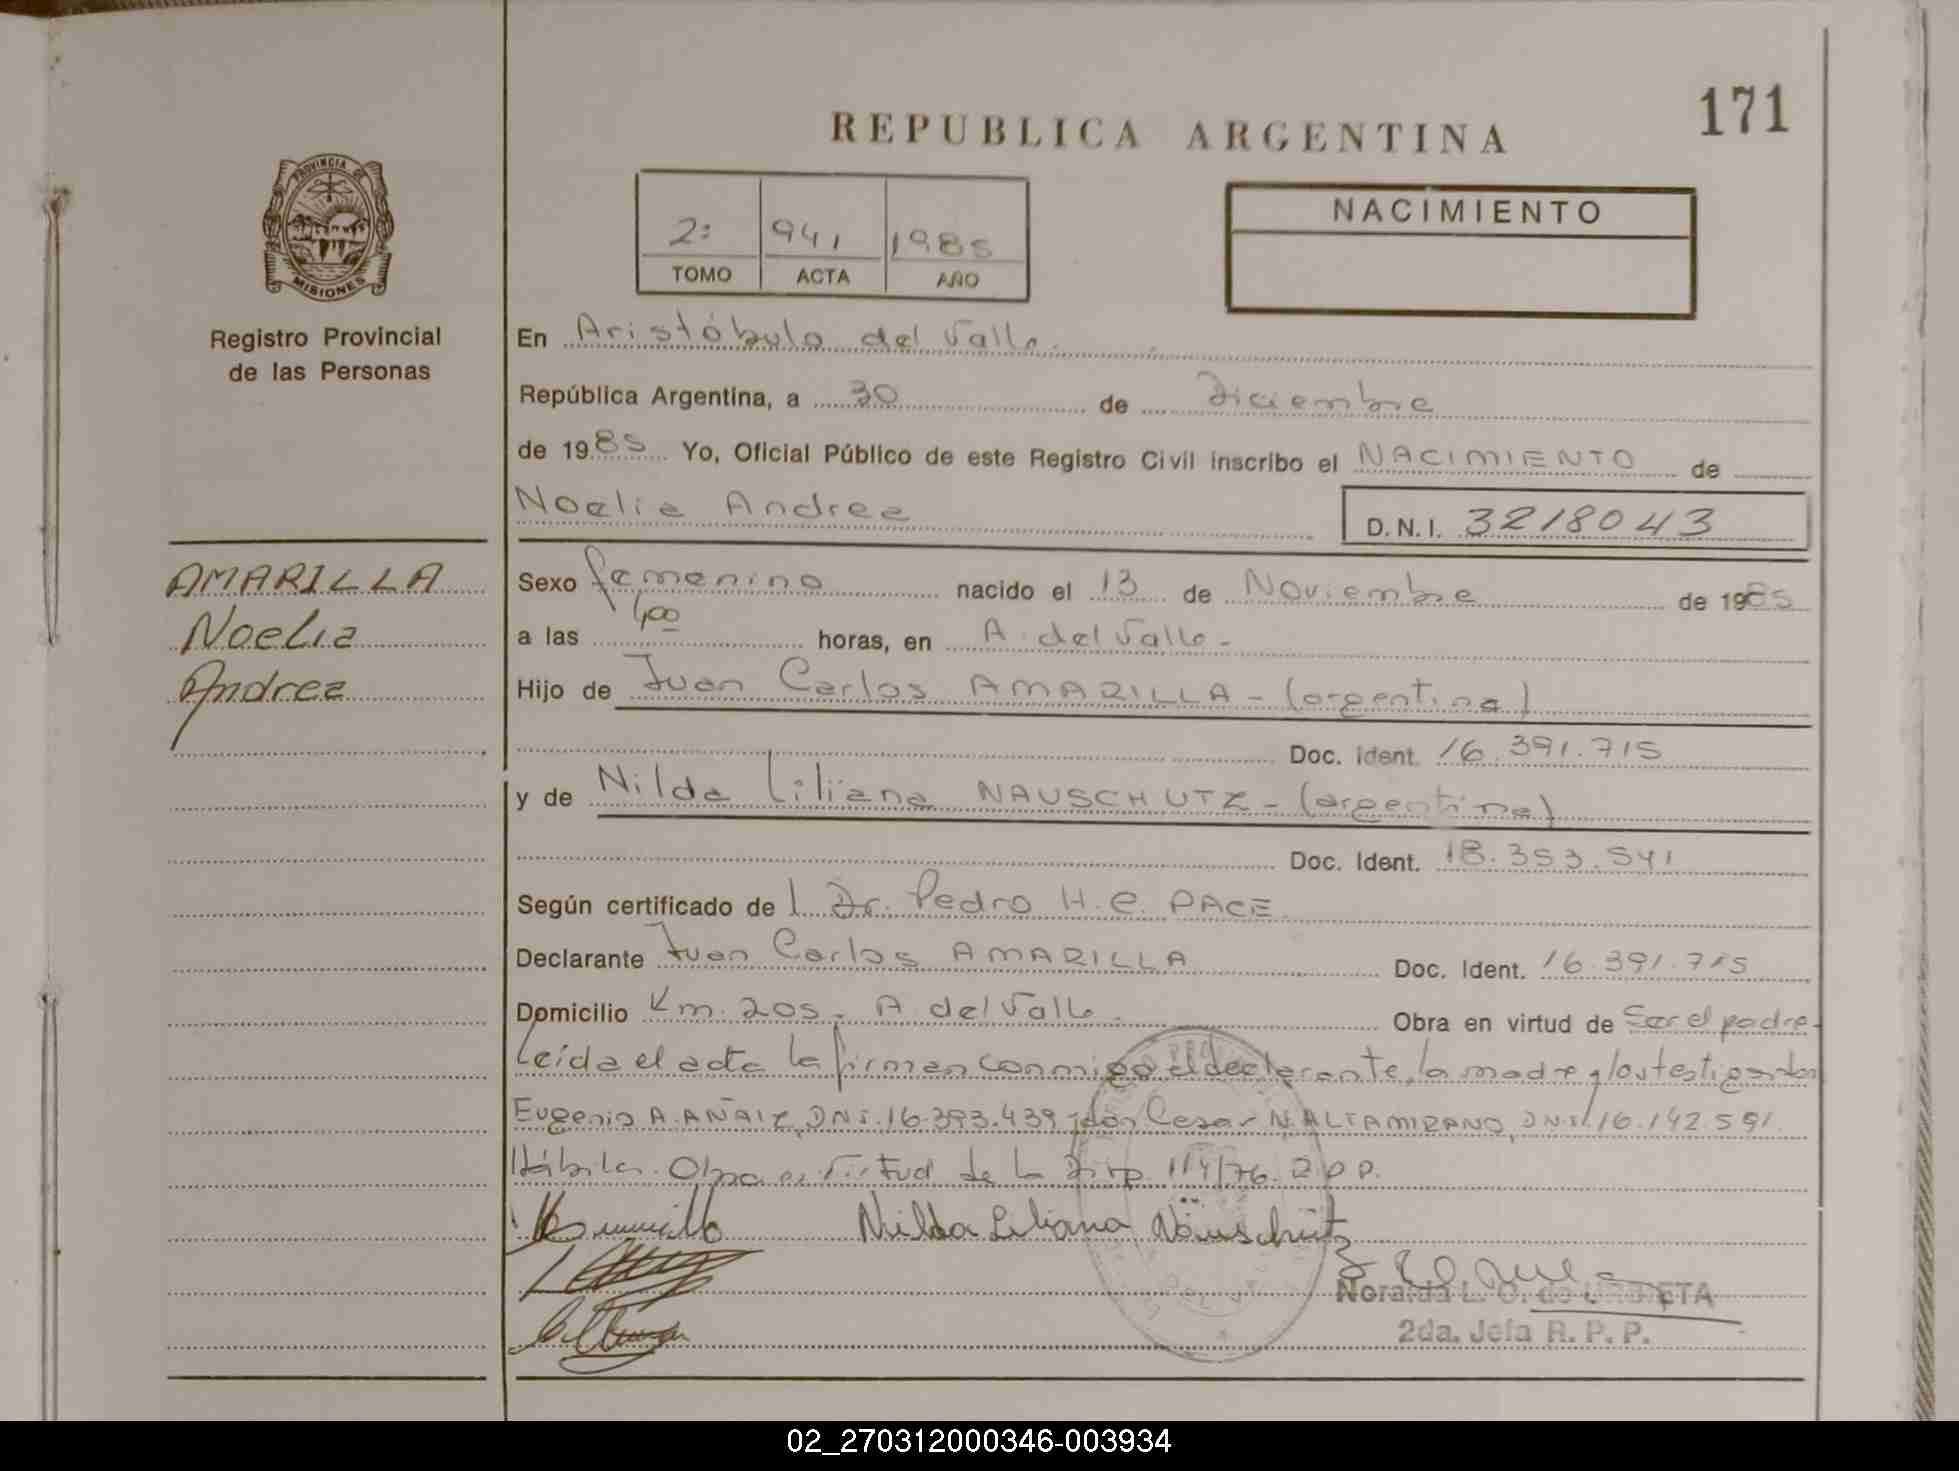 171
REPUBLICA ARGENTINA
PROVINCIA DE
MISIONES
Registro Provincial
de las Personas
2º 941 1985
TOMO ACTA AÑO
NACIMIENTO
En Aristóbulo del Valle.
República Argentina, a 30 de Diciembre
de 1985 Yo, Oficial Público de este Registro Civil inscribo el NACIMIENTO de
Noelia Andrea
D.N.I. 3218043
AMARILLA
Noelia
Andrea
Sexo femenino nacido el 13 de Noviembre de 1985
a las 400 horas, en A. del Valle -
Hijo de Juan Carlos AMARILLA - (argentina)
Doc. Ident. 16.391.715
y de Nilda Liliana NAUSCHUTZ - (argentina)
Doc. Ident. 18.353.541
Según certificado de l Dr. Pedro H. C. PACE
Declarante Juan Carlos AMARILLA Doc. Ident. 16.391.715
Domicilio Km. 205 - A. del Valle. Obra en virtud de Ser el padre -
Leída el acta la firman conmigo el declarante, la madre y los testigos don
Eugenio A. AÑAIZ, DNI. 16.393.439 y don Cesar N. ALTAMIRANO, DNI. 16.142.591.
Hábiles. Obra en virtud de la Disp. 114/76. R.P.P.
Nilda Liliana Näuschütz
Noraida L. O. de
2da. Jefa R. P. P.
02_270312000346-003934